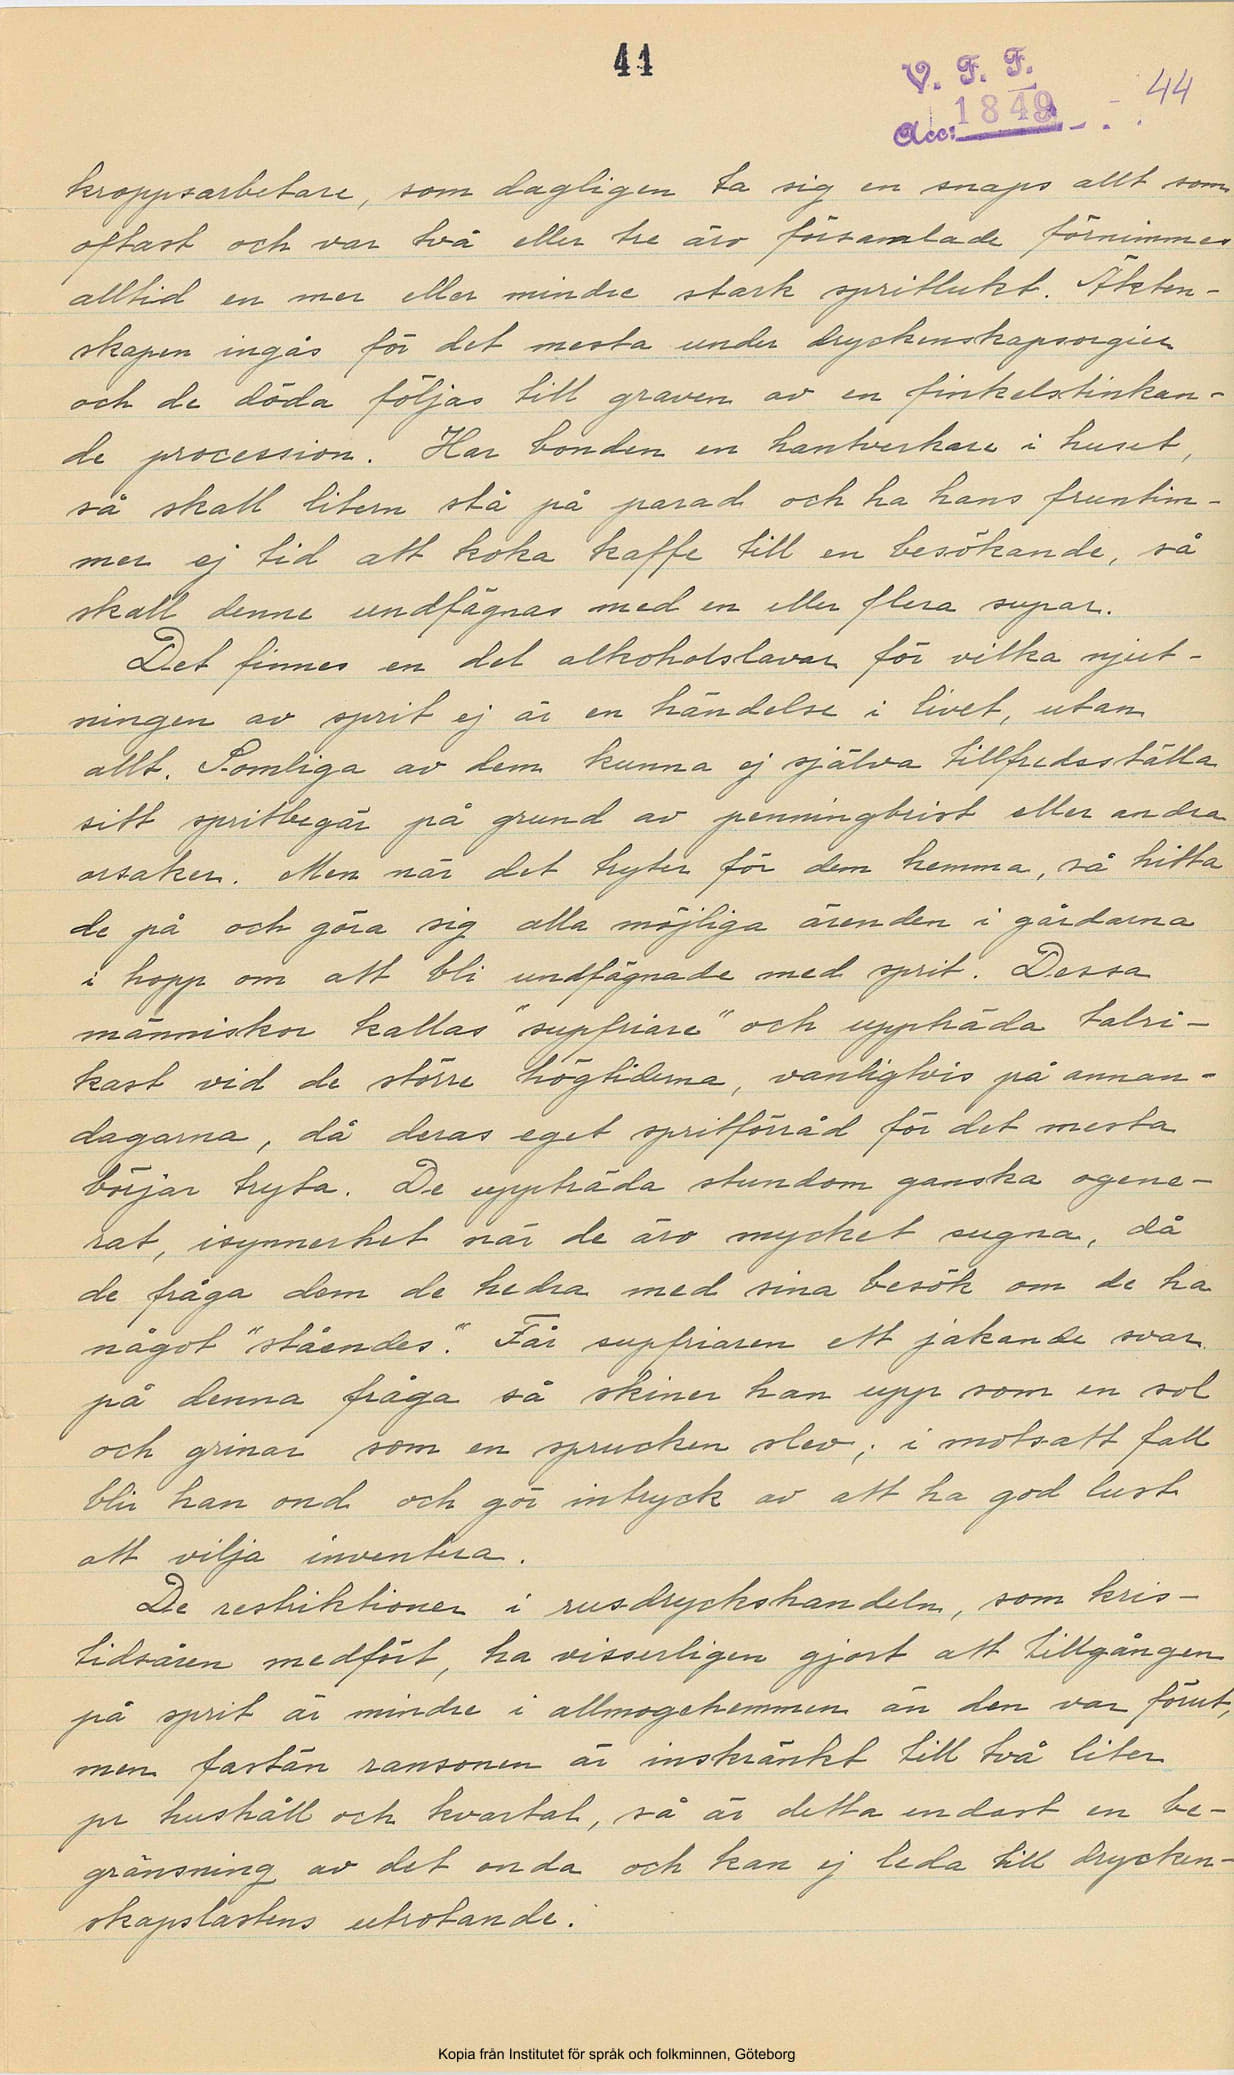 41
V. F. F.
1849
Acc:
44
kroppsarbetare, som dagligen ta sig en snaps allt som
oftast och var två eller tre äro församlade förnimmes
alltid en mer eller mindre stark spritlukt. Äkten-
skapen ingås för det mesta under dryckenskapsorgier
och de döda följas till graven av en finkelstinkan-
de procession. Har bonden en hantverkare i huset,
så skall litern stå på parad och ha hans fruntim-
mer ej tid att koka kaffe till en besökande, så
skall denne undfägnas med en eller flera supar.
Det finnes en del alkoholslavar för vilka njut-
ningen av sprit ej är en händelse i livet, utan
allt. Somliga av dem kunna ej själva tillfredsställa
sitt spritbegär på grund av penningbrist eller andra
orsaker. Men när det tryter för dem hemma, så hitta
de på och göra sig alla möjliga ärenden i gårdarna
i hopp om att bli undfägnade med sprit. Dessa
människor kallas "supfriare" och uppträda talri-
kast vid de större högtiderna, vanligtvis på annan-
dagarna, då deras eget spritförråd för det mesta
börjar tryta. De uppträda stundom ganska ogene-
rat, isynnerhet när de äro mycket sugna, då
de fråga dem de hedra med sina besök om de ha
något "ståendes". Får supfriaren ett jakande svar
på denna fråga så skiner han upp som en sol
och grinar som en sprucken slev; i motsatt fall
blir han ond och gör intryck av att ha god lust
att vilja inventera.
De restriktioner i rusdryckshandeln, som kris-
tidsåren medfört, ha visserligen gjort att tillgången
på sprit är mindre i allmogehemmen än den var förut,
men fastän ransonen är inskränkt till två liter
pr hushåll och kvartal, så är detta endast en be-
gränsning av det onda och kan ej leda till drycken-
skapslastens utrotande.
Kopia från Institutet för språk och folkminnen, Göteborg